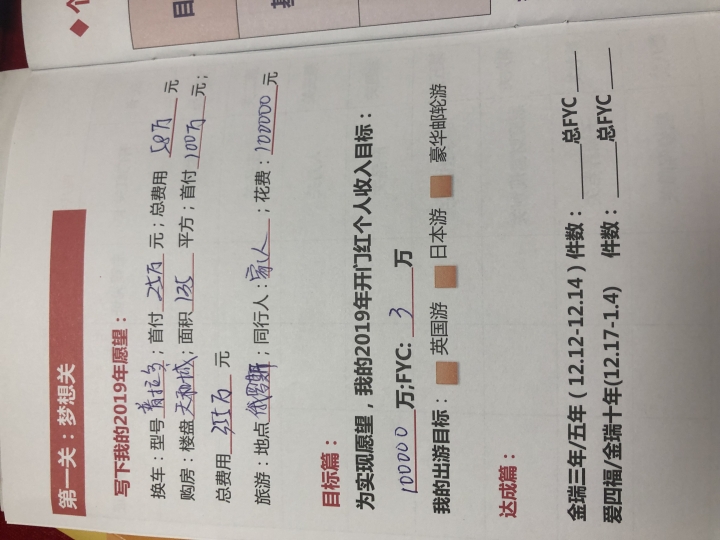 第一关：梦想关
写下我的2019年愿望：
换车：型号 普拉多；首付 25万 元；总费用 58万 元
购房：楼盘 天和城；面积 135 平方；首付 100万 元；
总费用 255万 元
旅游：地点 俄罗斯；同行人：家人；花费：100000 元
目标篇：
为实现愿望，我的2019年开门红个人收入目标：
100000 万;FYC: 3 万
我的出游目标： 英国游 日本游 豪华邮轮游
达成篇：
金瑞三年/五年（12.12-12.14）件数：____总FYC____
爱四福/金瑞十年(12.17-1.4) 件数：____总FYC____